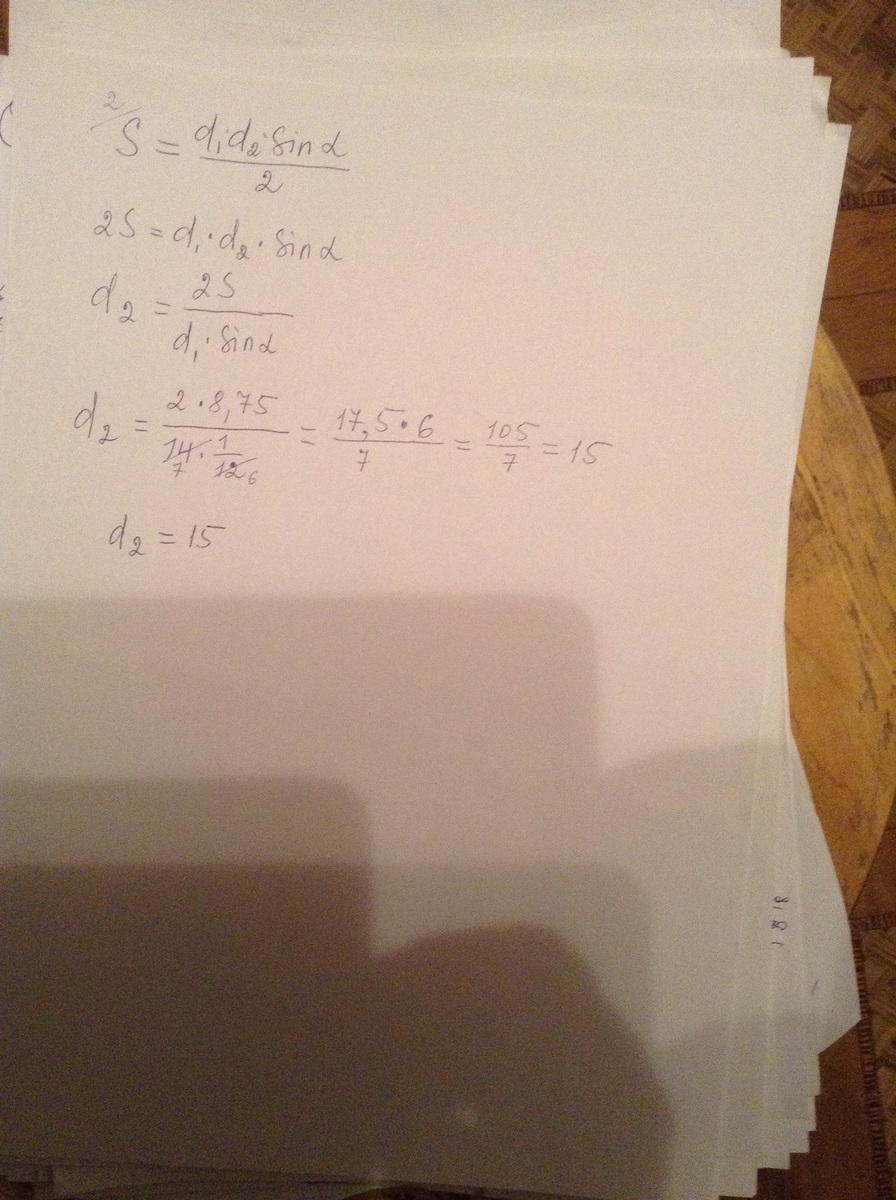 2/ S = d₁·d₂·sinα / 2
2S = d₁·d₂·sinα
d₂ = 2S / d₁·sinα
d₂ = 2·8,75 / 14 7 · 1/12 6 = 17,5·6 / 7 = 105/7 = 15
d₂ = 15